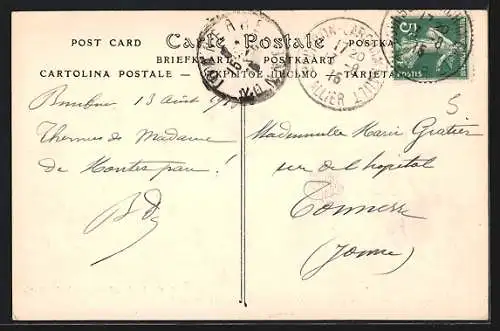 POST CARD Carte Postale POSTKA
BRIEFKA POSTKAART
CARTOLINA POSTALE ТКРЫТОЕ ПИСЬМО TARJETA
ALLIER
5
13 Août
Thermes de Madame
de Montespan !
Mademoiselle Marie Gratier
rue de l'hopital
Tonnerre
(Yonne)
5